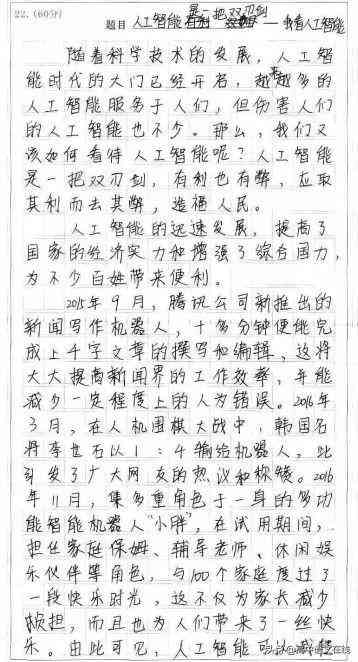 22.(60分)
是一把双刃剑
题目 人工智能有利 — 我看人工智能
随着科学技术的发展，人工智
能时代的大门已经开启，越来越多的
人工智能服务于人们，但伤害人们
的人工智能也不少。那么，我们又
该如何看待人工智能呢？人工智能
是一把双刃剑，有利也有弊，应取
其利而去其弊，造福人民。
人工智能的迅速发展，提高了
国家的经济实力和增强了综合国力，
为不少百姓带来便利。
2015年9月，腾讯公司新推出的
新闻写作机器人，十多分钟便能完
成上千字文章的撰写和编辑，这将
大大提高新闻界的工作效率，并能
减少一定程度上的人为错误。2016年
3月，在人机围棋大战中，韩国名
将李世石以1：4输给机器人，此
引发了广大网友的热议和称赞。2016
年11月，集多重角色于一身的多功
能智能机器人“小胖”，在试用期间，
担任家庭保姆、辅导老师、休闲娱
乐伙伴等角色，与100个家庭度过了
一段快乐时光，这不仅为家长减少
负担，而且也为人们带来了一丝快
乐。由此可见，人工智能可以减轻